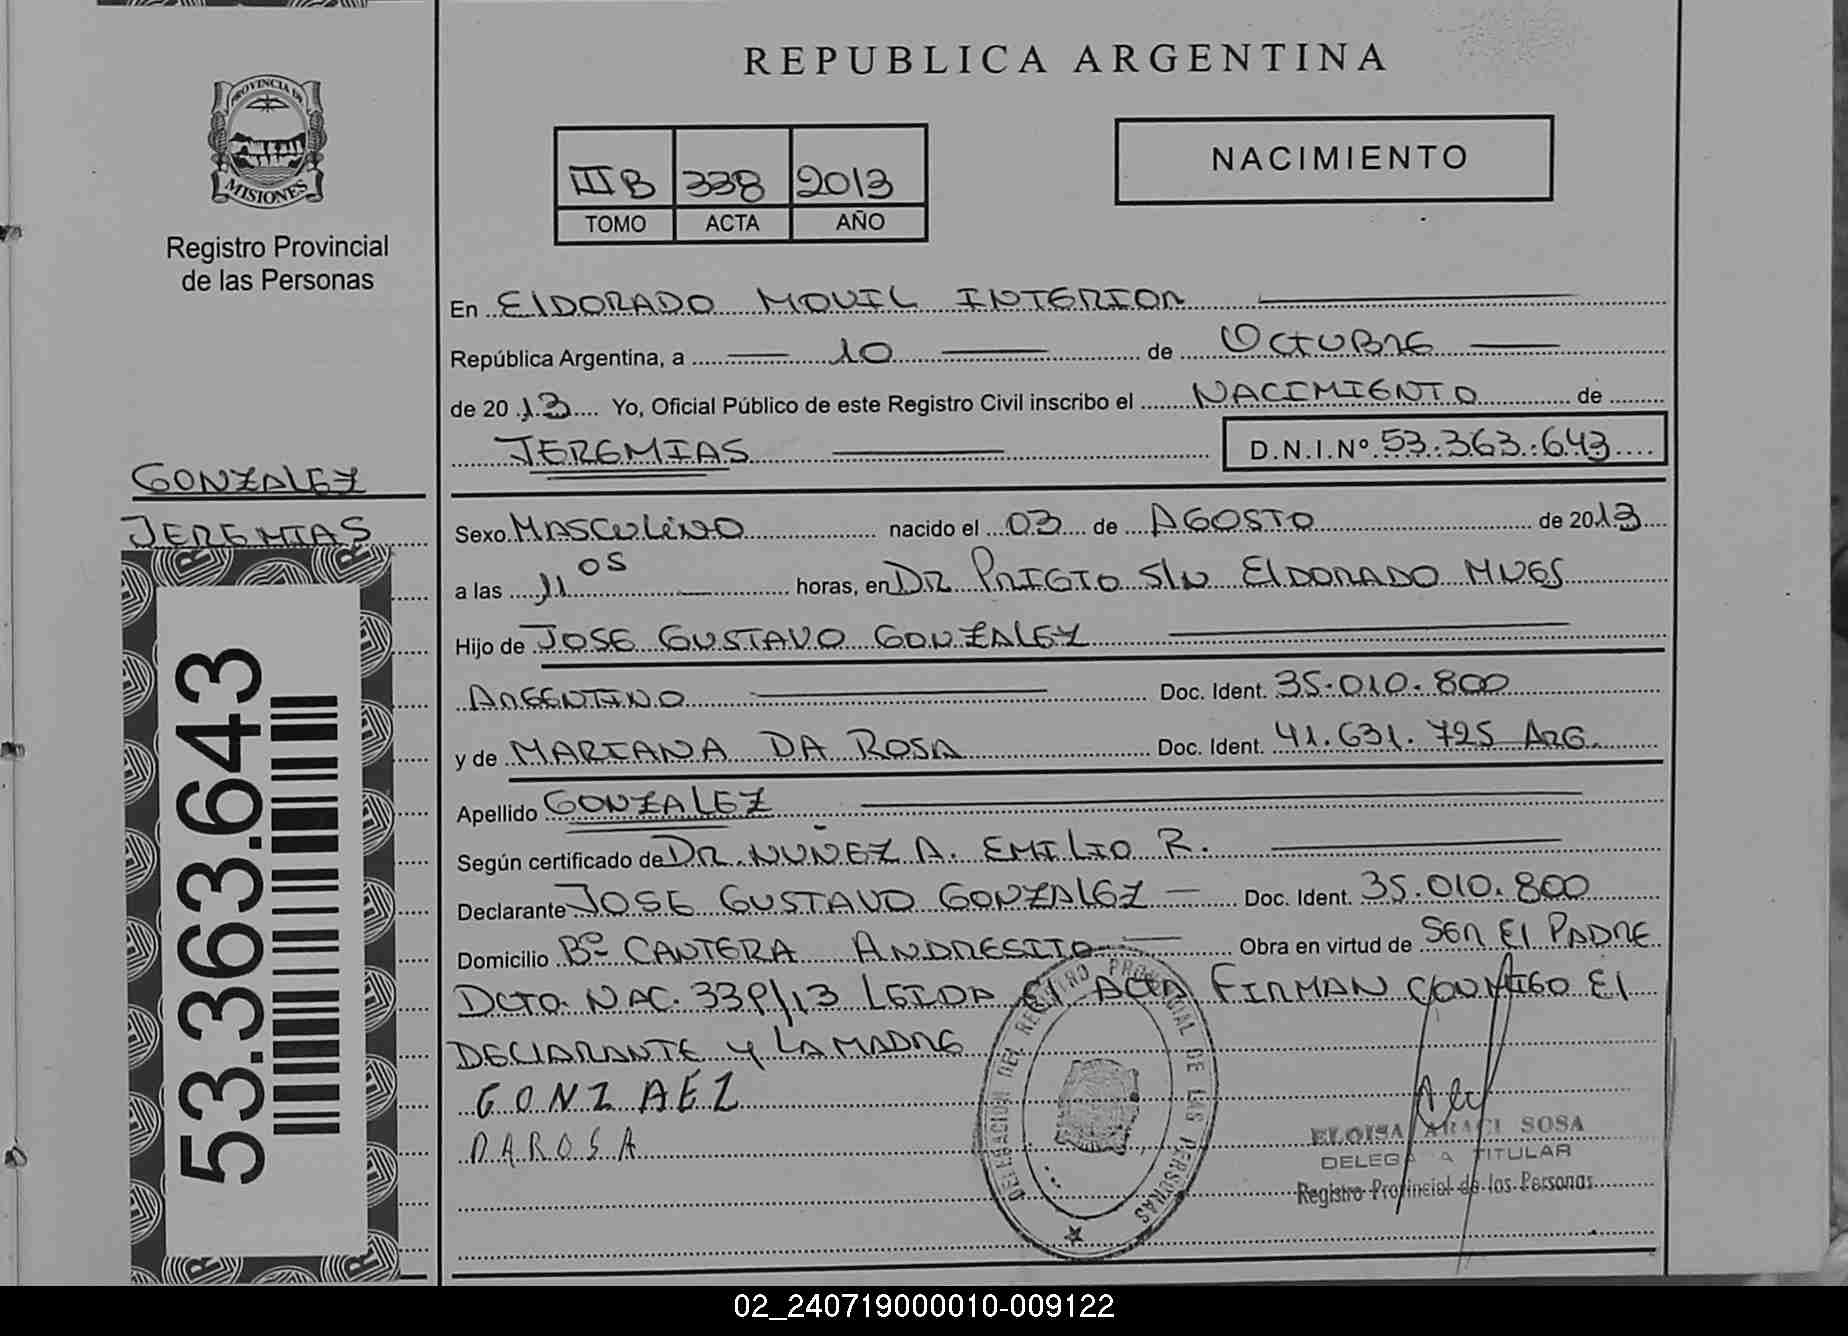 REPUBLICA ARGENTINA
PROVINCIA DE
MISIONES
Registro Provincial
de las Personas
III B 338 2013
TOMO ACTA AÑO
NACIMIENTO
En ElDORADO MOVIL INTERIOR
República Argentina, a 10 de OCTUBRE
de 2013 Yo, Oficial Público de este Registro Civil inscribo el NACIMIENTO de
JEREMIAS D.N.I.Nº 53.363.643
GONZALEZ
JEREMIAS
53.363.643
Sexo MASCULiNO nacido el 03 de AGOSTO de 2013
a las 11 05 horas, en DR PRIETO S/N ElDORADO MNES
Hijo de JOSE GUSTAVO GONZALEZ
ARGENTINO Doc. Ident. 35.010.800
y de MARIANA DA ROSA Doc. Ident. 41.631.725 ARG.
Apellido GONZALEZ
Según certificado de DR. NUÑEZ A. EMILIO R.
Declarante JOSE GUSTAVO GONZALEZ Doc. Ident. 35.010.800
Domicilio Bº CANTERA ANDRESITO Obra en virtud de SER El PADRE
DCTO. NAC. 339/13 LEIDA El ACTA FIRMAN CONMIGO El
DEClARANTE y LA MADRE
GONZAEZ
DAROSA
DELEGACION DEL REGISTRO PROVINCIAL DE LAS PERSONAS
ELOISA ARACI SOSA
DELEGADA TITULAR
Registro Provincial de las Personas
02_240719000010-009122